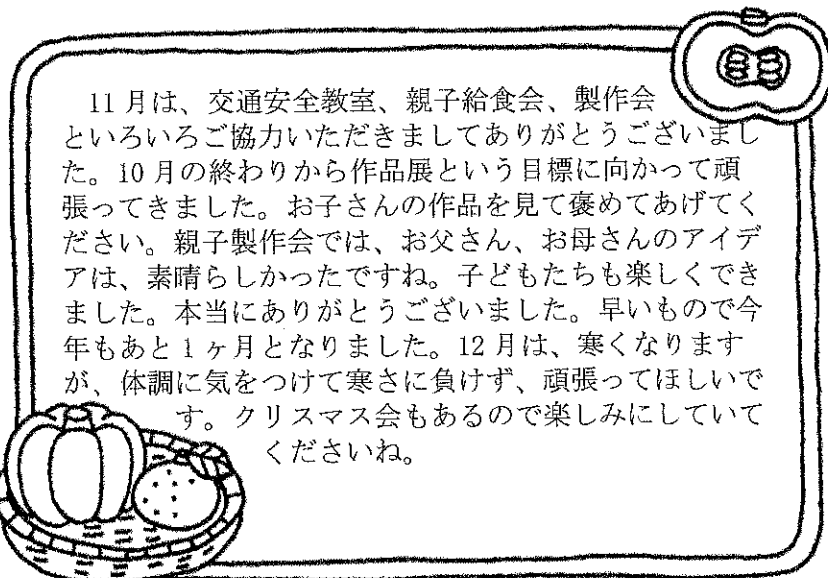 11月は、交通安全教室、親子給食会、製作会
といろいろご協力いただきましてありがとうございまし
た。10月の終わりから作品展という目標に向かって頑
張ってきました。お子さんの作品を見て褒めてあげてく
ださい。親子製作会では、お父さん、お母さんのアイデ
アは、素晴らしかったですね。子どもたちも楽しくでき
ました。本当にありがとうございました。早いもので今
年もあと1ヶ月となりました。12月は、寒くなります
が、体調に気をつけて寒さに負けず、頑張ってほしいで
す。クリスマス会もあるので楽しみにしていて
くださいね。